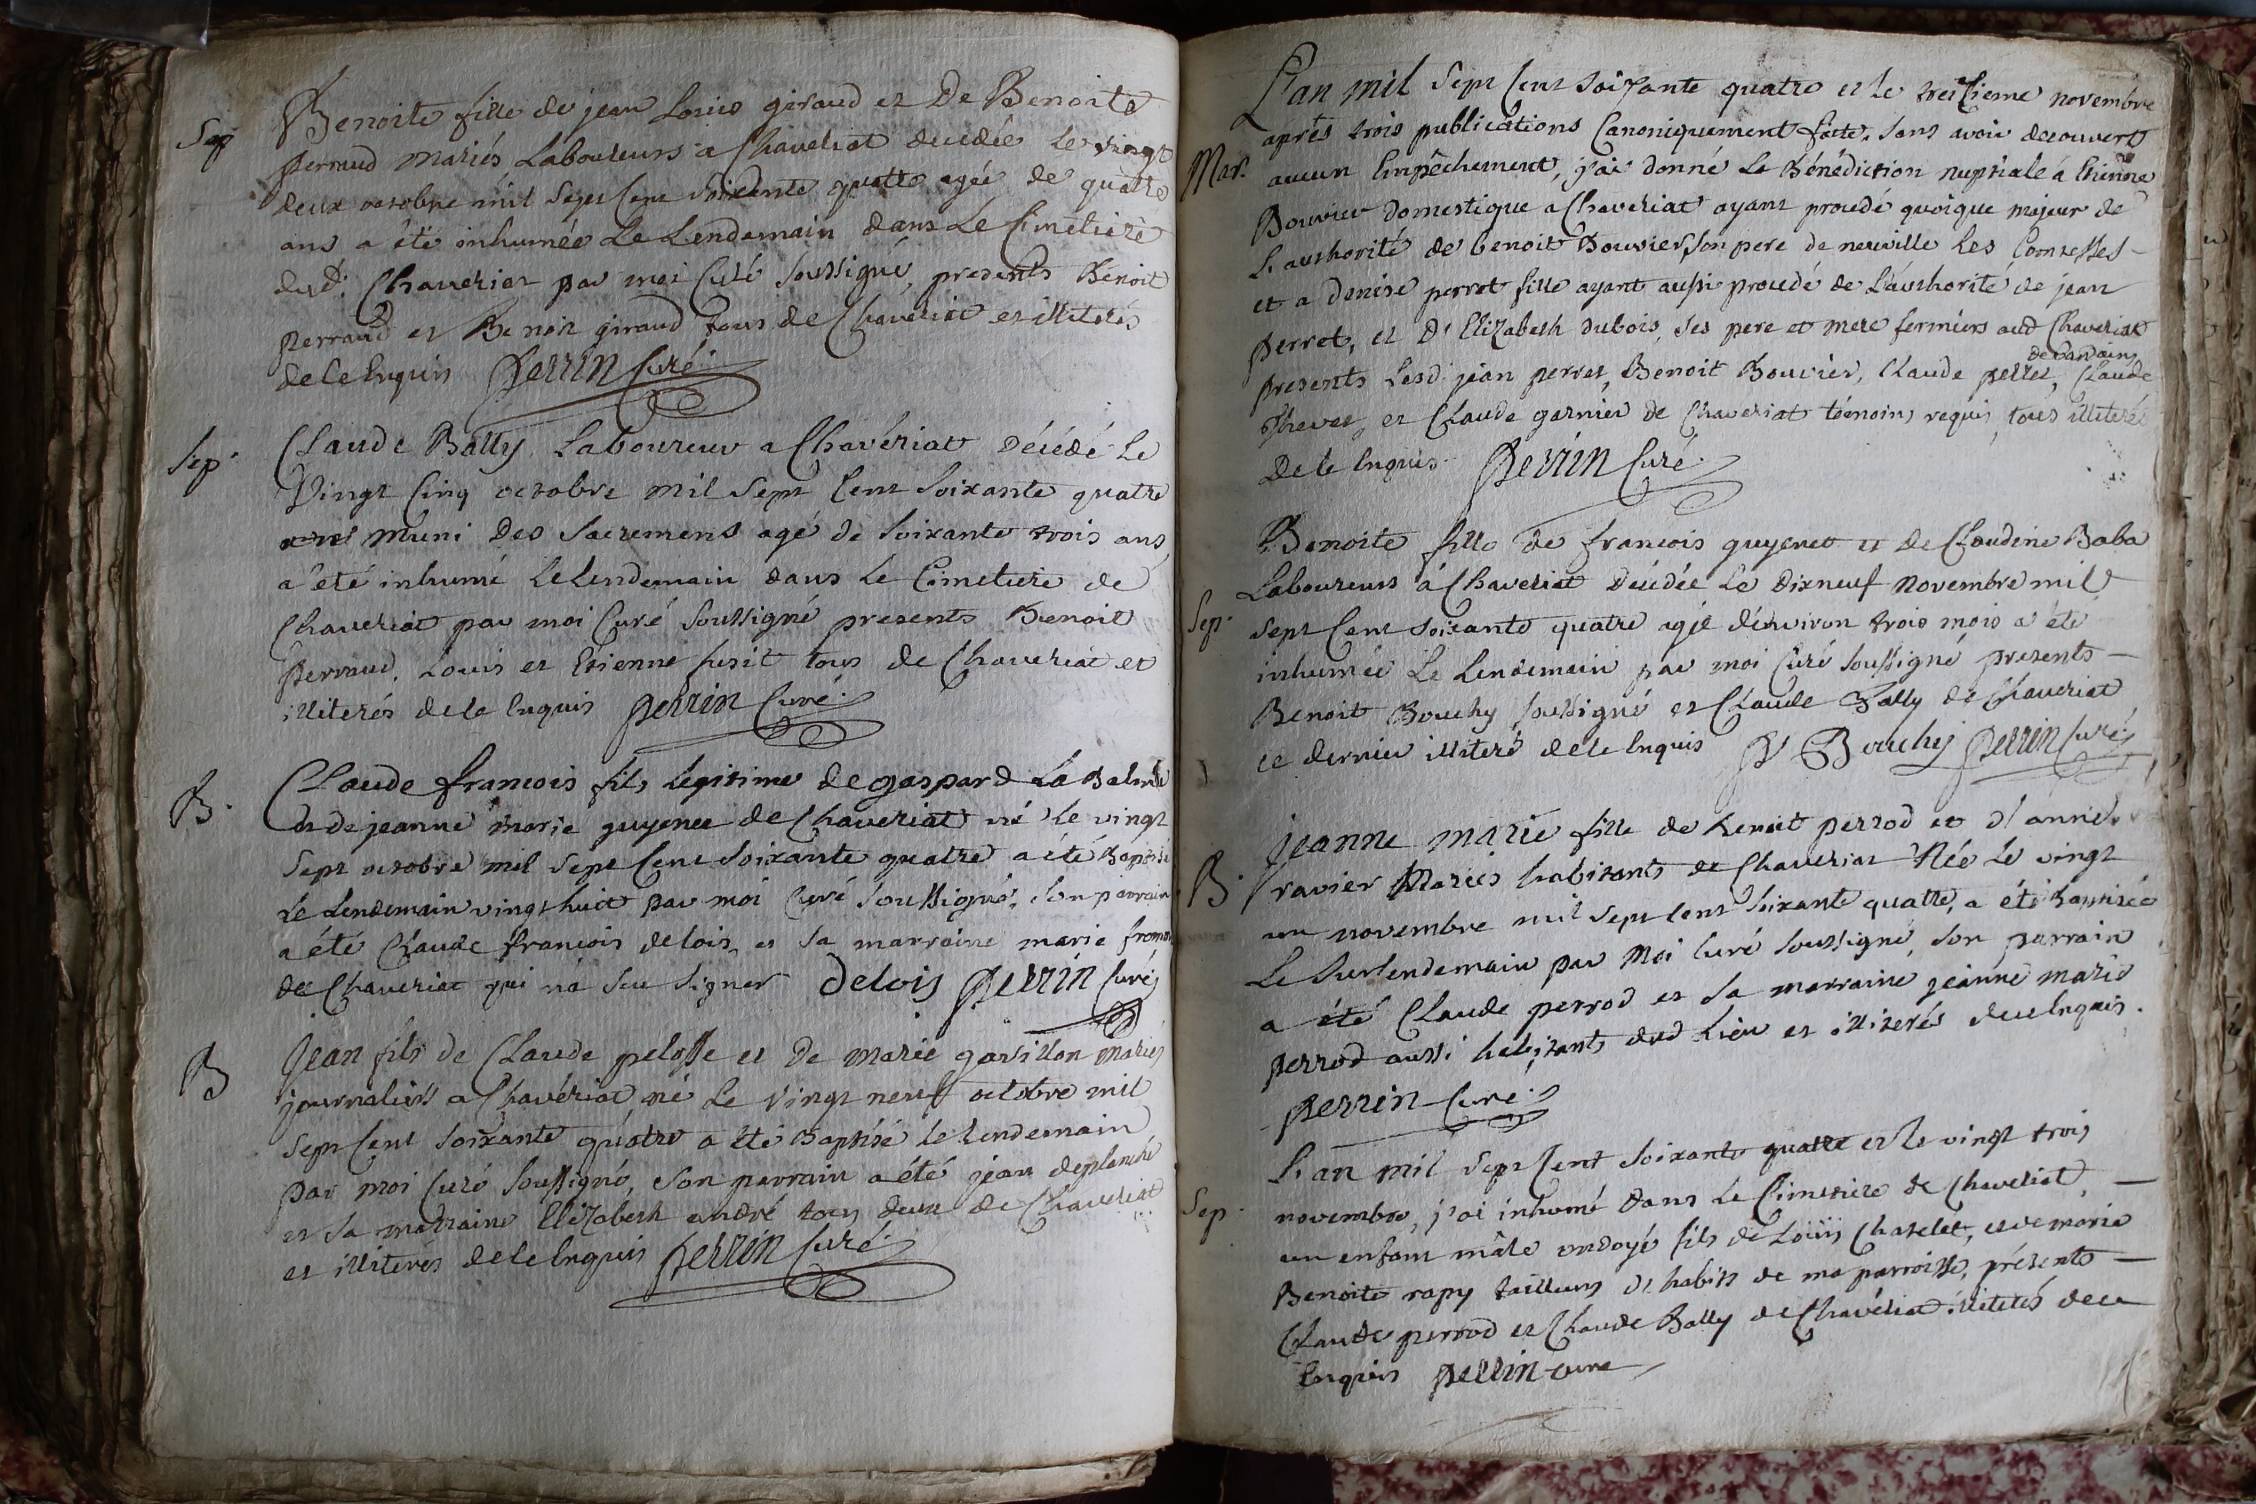 Sep
Benoite fille de jean Louis giraud et De Benoite
perraud mariés Laboureurs a Chaveriat decedée le vingt
deux octobre mil Sept Cent Soixante quatre agée de quatre
ans a été inhumée Le Lendemain dans Le Cimetiere
dud. Chaveriat par moi Curé Soussigné, presents Benoit
perraud et Benoit giraud tous de Chaveriat et illiterés
de ce Enquis Perrin Curé.
Sep.
Claude Bally Laboureur a Chavériat Décédé Le
Vingt Cinq octobre mil Sept Cent Soixante quatre
muni Des Sacremens agé de Soixante trois ans
a été inhumé Le Lendemain dans Le Cimetiere de
Chaveriat par moi Curé Soussigné presents Benoit
Perraud, Louis et Etienne tous de Chaveriat et
illiterés de ce Enquis Perrin Curé.
B.
Claude francois fils Legitime de gaspard La Balme
et de jeanne marie guyenet de Chaveriat né Le vingt
Sept octobre mil Sept Cent Soixante quatre a été Baptisé
Le Lendemain vingt huit par moi Curé Soussigné, Son parrain
a été Claude francois delois et Sa marraine marie
de Chaveriat qui n'a Sçu Signer Delois Perrin Curé
B
Jean fils de Claude pelosse et De Marie gavillon mariés
journaliers a Chavériat né Le Vingt neuf octobre mil
Sept Cent Soixante quatre a été Baptisé le Lendemain
par moi Curé Soussigné, Son parrain a été jean deplanche
et Sa marraine Elizabeth andré tous deux de Chaveriat
et illiterés de ce Enquis Perrin Curé.
L'an mil Sept Cent Soixante quatre et le treisieme novembre
aprés trois publications Canoniquement faite, Sans avoir decouvert
Mar.
aucun Empêchement, j'ai donné La Bénédiction nuptiale á Etienne
Bouvier Domestique a Chaveriat ayant procedé quoique majeur de
L'authorité de benoit Bouvier Son pere de neuville Les Comtesses -
et a denise perret fille ayant aussi procedé de L'authorité de jean
Perret, et D'Elizabeth Dubois, Ses pere et mere fermiers aud Chaveriat
de Vandeins
presents Lesd. jean perret, Benoit Bouvier, Claude perret, Claude
Thevet, et Claude garnier de Chaveriat témoins requis, tous illiterés
De ce Enquis. Perrin Curé.
Benoite fille de francois guyenet et de Claudine Baba
Laboureurs á Chaveriat Décédée Le Dixneuf novembre mil
Sep.
Sept Cent Soixante quatre agée d'environ trois mois a été
inhumée Le Lendemain par moi Curé Soussigné presents -
Benoit Bouchy Soussigné et Claude Bally de Chaveriat
ce dernier illiteré de ce Enquis B Bouchy Perrin Curé
Jeanne Marie fille de benoit perrod et d'anne
B.
ravier Mariés habitants de Chaveriat Née Le vingt
un novembre mil Sept Cent Soixante quatre, a été Baptisée
Le Surlendemain par Moi Curé Soussigné, Son parrain
a été Claude perrod et Sa marraine jeanne marie
perrod aussi habitants dud Lieu et illiterés de ce Enquis.
Perrin Curé.
L'an mil Sept Cent Soixante quatre et le vingt trois
Sep.
novembre, j'ai inhumé dans Le Cimetiere de Chaveriat, -
un enfant mâle ondoyé fils de Loüis Chatelet, et de marie
Benoite rapy tailleurs d'habits de ma parroisse, présents -
Claude perrod et Claude Bally de Chavériat illiterés de ce
Enquis Perrin Cure